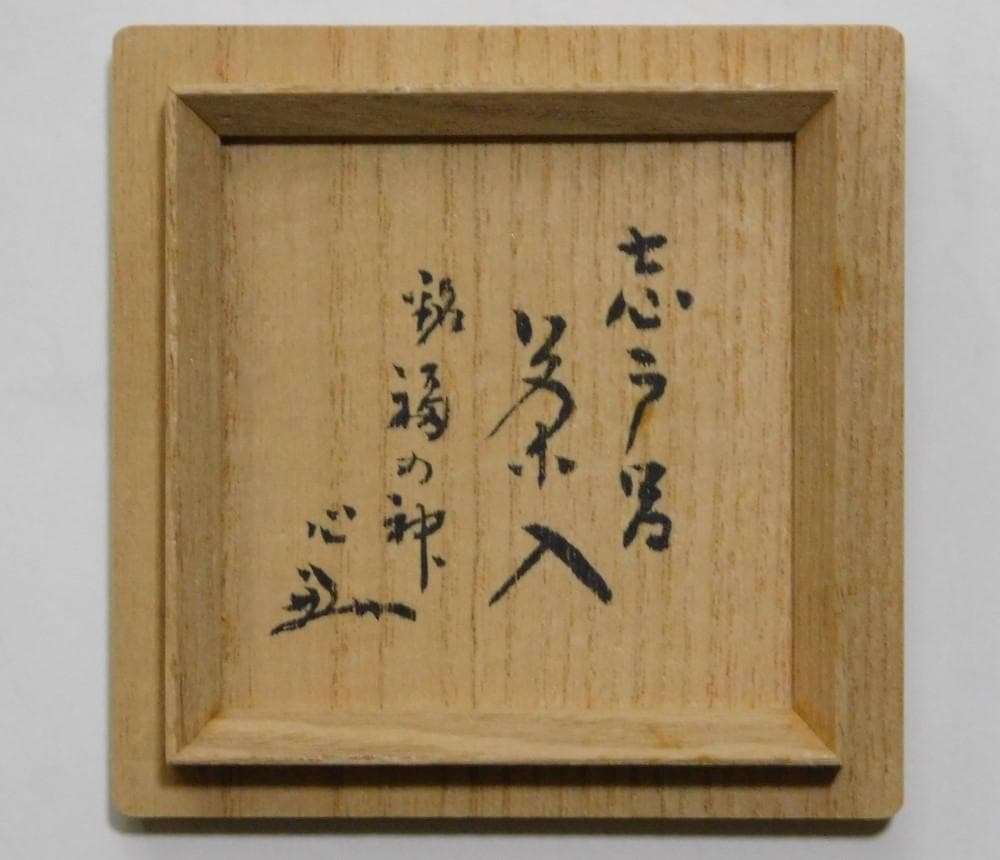 志戸呂
茶入
銘 福の神
心